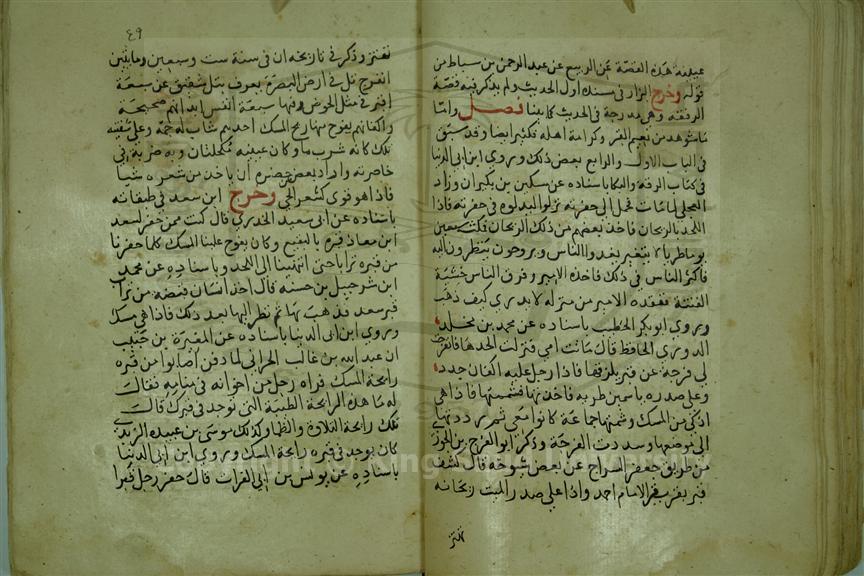 عيلنه هذه القصة عن الربيع عن عبد الرحمن بن سباط من
قوله وخرج البزار في مسنده اول الحديث ولم يذكر فيه قصة
الرفقة وهي مدرجة في الحديث كما بينا فصل واما
ما شوهد من نعيم القبر وكرامة اهله فكثير ايضا وقد سبق
في الباب الاول والرابع بعض ذلك وروي ابن ابي الدنيا
في كتاب الرقة والبكا باسناده عن سكين بن بكير ان وراد
العجلي لما مات فحمل الي حفرته نزلوا ليدلوه في حفرته فاذا
اللحد بالريحان فاخذ بعضهم من ذلك الريحان فمكث سبعين
يوما طريا لا يتغير يغدوا الناس ويروحون ينظرون اليه
فاكثر الناس في ذلك فاخذه الامير وفرق الناس خشية
الفتنة ففقده الامير من منزله لا يدري كيف ذهب
وروي ابو بكر الخطيب باسناده عن محمد بن مخلد
الدوري الحافظ قال ماتت امي فنزلت الحدها فانفرجت
لي فرجة عن قبر بلزقها فاذا رجل عليه اكفان جدد
وعلي صدره ياسمين طرية فاخذتها فشممتها فاذا هي
اذكي من المسك وشمها جماعة كانوا معي ثم رددتها
الي موضعها وسددت الفرجة وذكر ابو الفرج بن الجوزي
من طريق جعفر السراج عن بعض شيوخه قال كشف
قبر بقرب قبر الامام احمد واذا علي صدر الميت ريحانة
تهتز
٤٩
تهتز وذكر في تاريخه ان في سنة ست وسبعين ومايتين
انفرج تل في ارض البصرة يعرف بتل شقيق عن سبعة
اقبر في مثل الحوض وفيها سبعة انفس ابدانهم صحيحة
واكفانهم يفوح منها ريح المسك احدهم شاب له جمة وعلي شفتيه
بلل كانه شرب ما وكان عينيه مكحلتان وبه ضربة في
خاصرته واراد بعض من حضره ان ياخذ من شعره شيا
فاذا هو قوي كشعر الحي وخرج ابن سعد في طبقاته
باسناده عن ابي سعيد الخدري قال كنت ممن حفر لسعد
ابن معاذ قبره بالبقيع وكان يفوح علينا المسك كلما حفرنا
من قبره ترابا حتي انتهينا الي اللحد وباسناده عن محمد
ابن شرحبيل بن حسنه قال اخذ انسان قبضة من تراب
قبر سعد فذهب بها ثم نظر اليها بعد ذلك فاذا هي مسك
وروي ابن ابي الدنيا باسناده عن المغيرة بن حبيب
ان عبد الله بن غالب الحراني لما دفن اصابوا من قبره
رايحة المسك فراه رجل من اخوانه في منامه فقال
له ما هذه الرايحة الطيبة التي توجد في قبرك قال
تلك رايحة التلاوة والظما وكذلك موسي بن عبيده الزيدي
كان يوجد في قبره رايحة المسك وروي ابن ابي الدنيا
باسناده عن يونس بن ابي الفرات قال حفر رجل قبرا